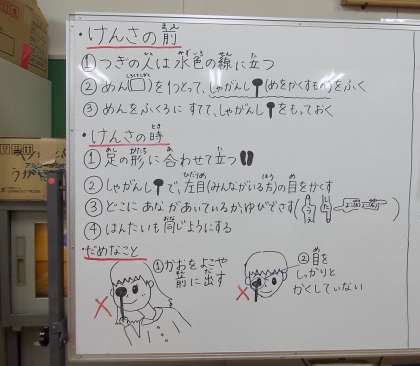 ・けんさの前
①つぎの人は水色の線に立つ
②めん(□)を1つとって、しゃがんし(めをかくすもの)をふく
③めんをふくろにすてて、しゃがんしをもっておく
・けんさの時
①足の形に合わせて立つ
②しゃがんしで、左目(みんながいる方)の目をかくす
③どこにあながあいているか、ゆびでさす(
④はんたいも同じようにする
だめなこと
①かおをよこや
前に出す
②目を
しっかりと
かくしていない